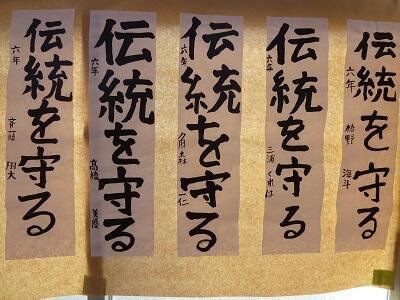 伝統を守る
六年 柏野 海斗
伝統を守る
六年 三浦 くれは
伝統を守る
六年 角森 仁
伝統を守る
六年 高橋 美優
伝統を守る
六年 斉藤 翔大